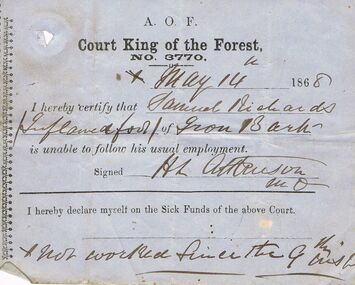 A. O. F.
Court King of the Forest,
NO. 3770.
x May 14th 1868
I hereby certify that Samuel Richards
(Inflamed foot) of Iron Bark
is unable to follow his usual employment.
Signed H L Atkinson
M D
I hereby declare myself on the Sick Funds of the above Court.
x Not worked since the 9th inst